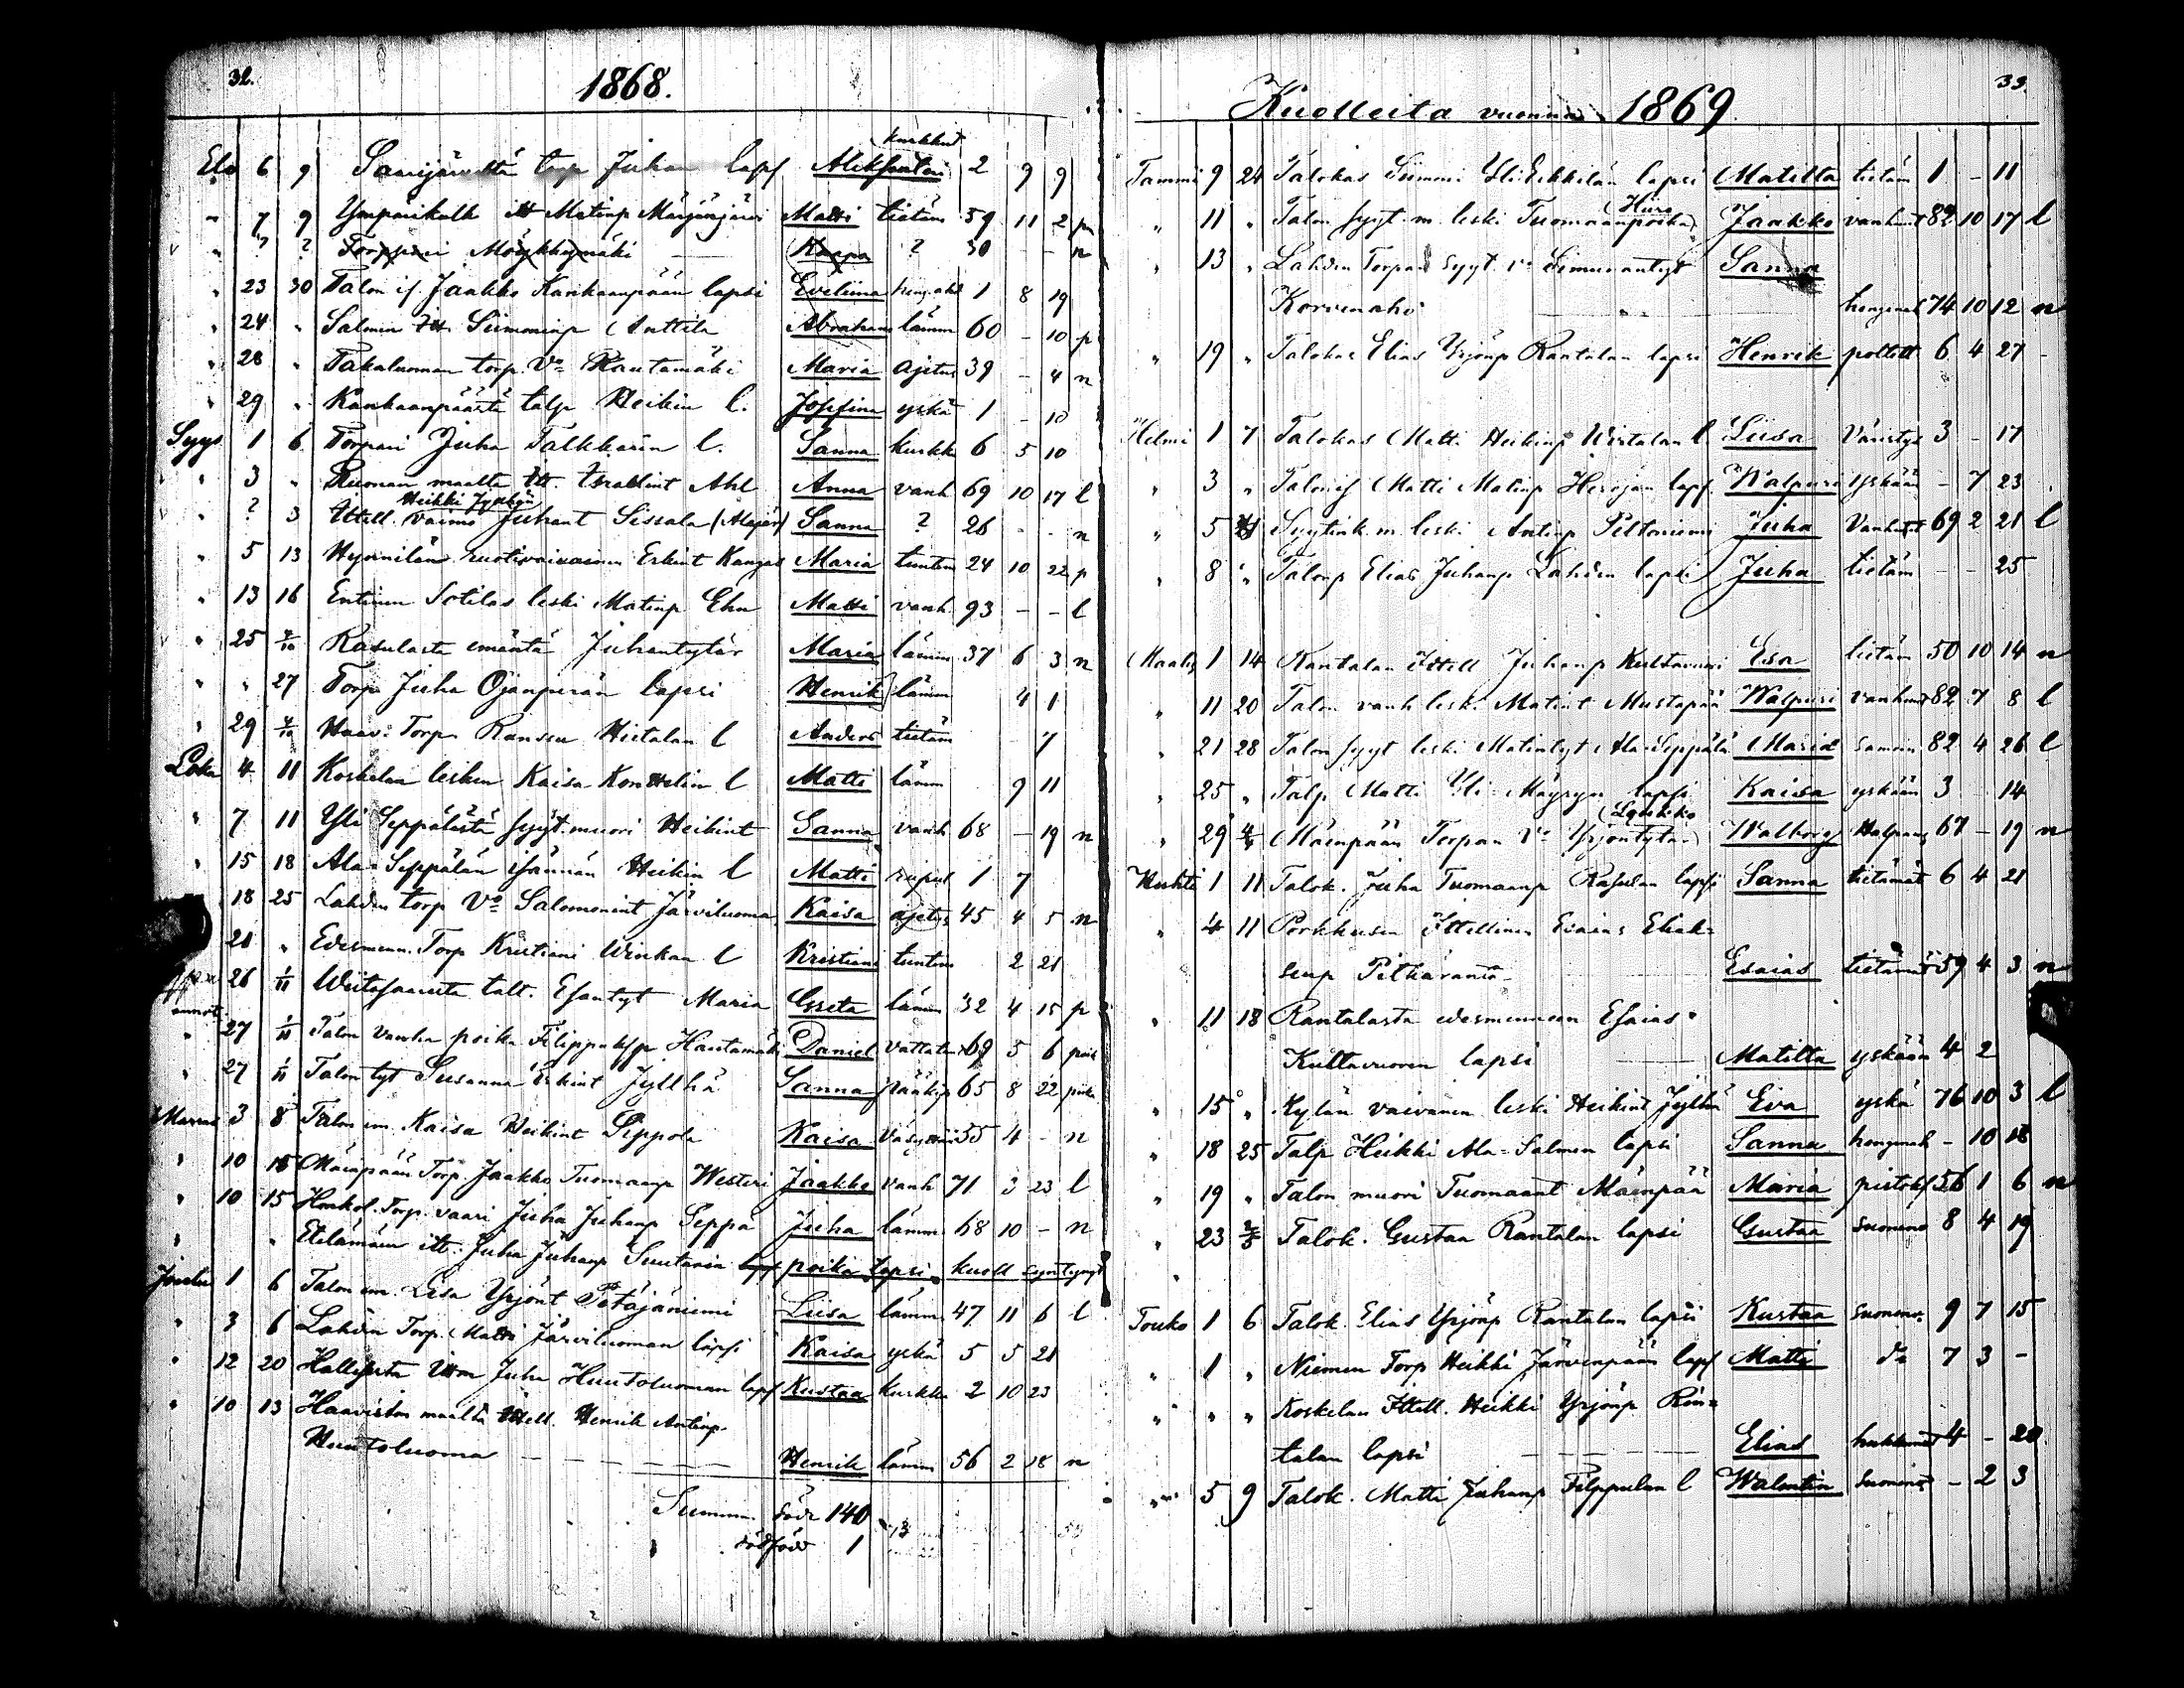 32.
1868.
kurkkut
Elo 6 9 Saarijärveltä torp Juhan lapf Alekfanteri 2 9 9
" 7 9 Ympärikulk itt Matinp Märjänjärvi Matti tietäm 59 11 2 p
" ? ? Torppari Möykkymäki — Kaapo ? 30 - n
" 23 30 Talon if. Jaakko Kankaanpään lapsi Eveliina heng.ahd 1 8 19
" 24 " Salmen itt. Siimoninp Anttila Abraham lämm 60 - 10 p
" 28 " Pakaluoman torp. Vo Rautamäki Maria ajetus 39 - 4 n
" 29 " Kankaanpäästä talp Heikin l. Josefina yskä 1 - 10
Syys 1 6 Torpari Juha Talkkarin l. Sanna kurkk 6 5 10
" 3 " Ruonan maalta itt. Israelint Ahl Anna vanh 69 10 17 l
Heikki Jyrkän
" ? 3 Ittell. vaimo Juhant Sissala (Alajär) Sanna ? 26 - - n
" 5 13 Hynnilän ruotivaivainen Erkint Kangas Maria tuntem 24 10 22 p
" 13 16 Entinen Sotilas leski Matinp Ehn Matti vanh. 93 - - l
" 25 2/10 Rasulasta emäntä Juhantytär Maria lämm 37 6 3 n
" " 27 Torp Juha Ojanperän lapsi Henrik lämm 4 1
" 29 4/10 Haav: Torp. Ranssu Hietalan l Anders tietäm 7
Loka 4 11 Koskelan lesken Kaisa l Matti lämm 9 11
" 7 11 Yli Seppälästä syyt.muori Heikint Sanna vanh 68 - 19 n
" 15 18 Ala-Seppälän isännän Heikin l Matti rupul 1 7
18 25 Lahden torp Vo Salomonint Järviluoma Kaisa ajetus 45 4 5 n
21 " Edesmenn. Torp Kristiani Winkan l Kristiani tuntem 2 21
26 1/11 Wiitasaarelta talt. Esantyt Maria Greta lämm 32 4 15 p
" 27 1/11 Talon vanha poika Filippuksp Hautamäki Daniel vattatauti 69 5 6 poik
" 27 1/11 Talon tyt Susanna Erkint Jyllhä Sanna pääkip 65 8 22 piika
Marras 3 8 Talon em. Kaisa Heikint Seppola Kaisa väsym 55 4 - n
" 10 15 Mäenpään Torp. Jaakko Tuomaanp Westeri Jaakko vanh 71 3 23 l
" 10 15 Honkol. Torp. vaari Juha Juhanp Seppä Juha lämm 68 10 - n
" " Etelämäen itt. Juha Juhanp Suutarin poika lapsi kuoll syntynyt
Joulu 1 6 Talon em. Lisa Yrjönt Petäjäniemi Liisa lämm 47 11 6 l
" 3 6 Lahden Torp. Matti Järviluoman lapsi Kaisa yskä 5 5 21
" 12 20 Juha Huutoluoman lapf Kustaa kurkku 2 10 23
" 10 13 Haaviston maalta ittell. Henrik Antinp
Huutoluoma — — — Henrik lämm 56 2 18 n
Summa död: 140
" dödföd 1

33.
Kuolleita vuonna 1869
Tammi 9 24 Talokas Siimmi Yli-Erkkilän lapsi Matilta tietäm 1 - 11
" 11 " Talon syyt m. leski Tuomaanpoika (Hirs) Jaakko vanhuut 82 10 17 l
" 13 " Lahden Torpan Syyt. vo Simunantyt Sanna
Korvenaho — " — hengenah 74 10 12 n
" 19 " Talokas Elias Yrjönp Rantalan lapsi Henrik poltett 6 4 27 -
Helmi 1 7 Talokas Matti Heikinp Wirtalan l Liisa Väristys 3 - 17
" 3 " Talon if Matti Matinp Herajan lapf. Walpuri yskään - 7 23
" 5 Syytink m. leski Antinp Peltoniemi Juha Vanhuut 69 2 21 l
" 8 " Talonp Elias Juhanp Lahden lapsi Juha tietäm - - 25
Maalis 1 14 Rantalan Ittell Juhanp Kultavuori Esa tietäm 50 10 14 n
" 11 20 Talon vanh leski Matint Mustapää Walpuri vanhuut 82 7 8 l
" 21 28 Talon syyt leski Matintyt Ala-Seppälä Maria samoin 82 4 26 l
" 25 " Talp Matti Yli-Mäyryn lapsi Kaisa yskään 3 - 14
" 29 4/4 Mäenpään Torpan Vo Yrjöntytär Walborg Halvaus 67 - 19 n
Huhti 1 11 Talok. Juha Tuomaanp Rasulan lapsi Sanna tietämät 6 4 21
" 4 11 Porkkusen Ittellinen Esaias Eliak=
senp Pitkäranta — Esaias tietämät 59 4 3 n
" 11 18 Rantalasta edesmenneen Esaias
Kultavuoren lapsi — Matilta yskään 4 2
" 15 " Kylän vaivanen leski Heikint Jyllhä Eva yskä 76 10 3 l
" 18 25 Talp Heikki Ala-Salmen lapsi Sanna hengenah - 10 18
" 19 " Talon muori Tuomaant Mäenpää Maria pistoks 56 1 6 n
" 23 2/5 Talok. Gustaa Rantalan lapsi Gustaa Suonenv 8 4 19
Touko 1 6 Talok. Elias Yrjönp Rantalan lapsi Kustaa Suonenv. 9 7 15
" 1 " Niemen Torp Heikki Järvenpään lapf Matti do 7 3 -
" " " Koskelan Ittell. Heikki Yrjönp Rin=
talan lapsi — Elias hukkunut 4 - 20
" 5 9 Talok. Matti Juhanp Filppulan l Walentin Suonenv - 2 3